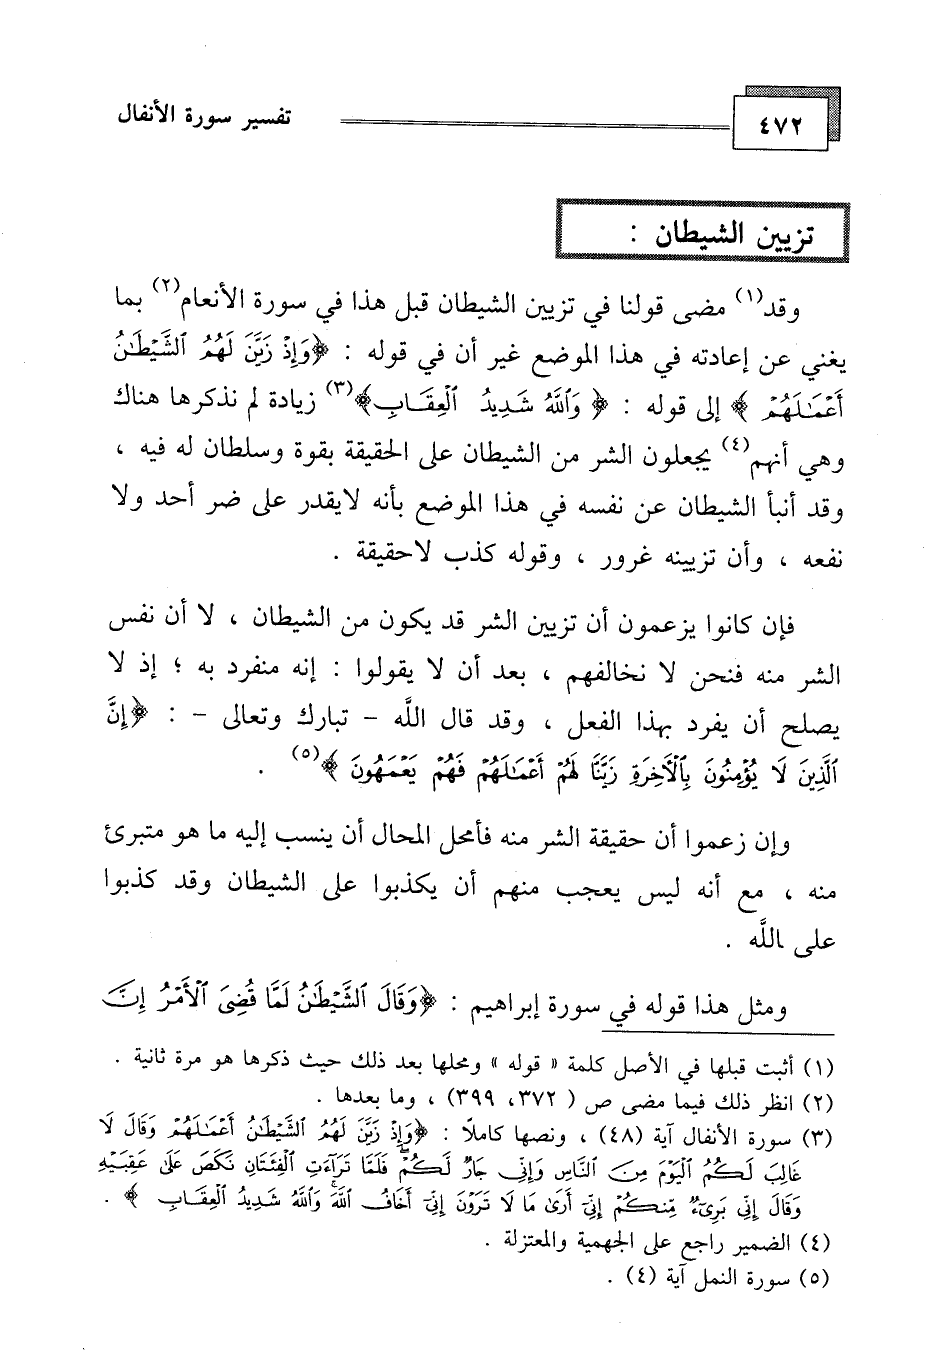 تفسير سورة الأنفال
٤٧٢
تزيين الشيطان :
وقد(١) مضى قولنا في تزيين الشيطان قبل هذا في سورة الأنعام(٢) بما
يغني عن إعادته في هذا الموضع غير أن في قوله : ﴿وَإِذْ زَيَّنَ لَهُمُ ٱلشَّيْطَٰنُ
أَعْمَٰلَهُمْ ﴾ إلى قوله : ﴿ وَٱللَّهُ شَدِيدُ ٱلْعِقَابِ﴾(٣) زيادة لم نذكرها هناك
وهي أنهم(٤) يجعلون الشر من الشيطان على الحقيقة بقوة وسلطان له فيه ،
وقد أنبأ الشيطان عن نفسه في هذا الموضع بأنه لايقدر على ضر أحد ولا
نفعه ، وأن تزيينه غرور ، وقوله كذب لاحقيقة .
فإن كانوا يزعمون أن تزيين الشر قد يكون من الشيطان ، لا أن نفس
الشر منه فنحن لا نخالفهم ، بعد أن لا يقولوا : إنه منفرد به ؛ إذ لا
يصلح أن يفرد بهذا الفعل ، وقد قال اللَّه – تبارك وتعالى – : ﴿إِنَّ
ٱلَّذِينَ لَا يُؤْمِنُونَ بِٱلْأَخِرَةِ زَيَّنَّا لَهُمْ أَعْمَٰلَهُمْ فَهُمْ يَعْمَهُونَ ﴾(٥) .
وإن زعموا أن حقيقة الشر منه فأمحل المحال أن ينسب إليه ما هو متبرئ
منه ، مع أنه ليس يعجب منهم أن يكذبوا على الشيطان وقد كذبوا
على اللَّه .
ومثل هذا قوله في سورة إبراهيم : ﴿وَقَالَ ٱلشَّيْطَٰنُ لَمَّا قُضِىَ ٱلْأَمْرُ إِنَّ
(١) أثبت قبلها في الأصل كلمة « قوله » ومحلها بعد ذلك حيث ذكرها هو مرة ثانية .
(٢) انظر ذلك فيما مضى ص ( ٣٧٢، ٣٩٩) ، وما بعدها .
(٣) سورة الأنفال آية (٤٨) ، ونصها كاملًا : ﴿وَإِذْ زَيَّنَ لَهُمُ ٱلشَّيْطَٰنُ أَعْمَٰلَهُمْ وَقَالَ لَا
غَالِبَ لَكُمُ ٱلْيَوْمَ مِنَ ٱلنَّاسِ وَإِنِّى جَارٌ لَّكُمْ فَلَمَّا تَرَآءَتِ ٱلْفِئَتَانِ نَكَصَ عَلَىٰ عَقِبَيْهِ
وَقَالَ إِنِّى بَرِىٓءٌ مِّنكُمْ إِنِّىٓ أَرَىٰ مَا لَا تَرَوْنَ إِنِّىٓ أَخَافُ ٱللَّهَ وَٱللَّهُ شَدِيدُ ٱلْعِقَابِ ﴾ .
(٤) الضمير راجع على الجهمية والمعتزلة .
(٥) سورة النمل آية (٤) .